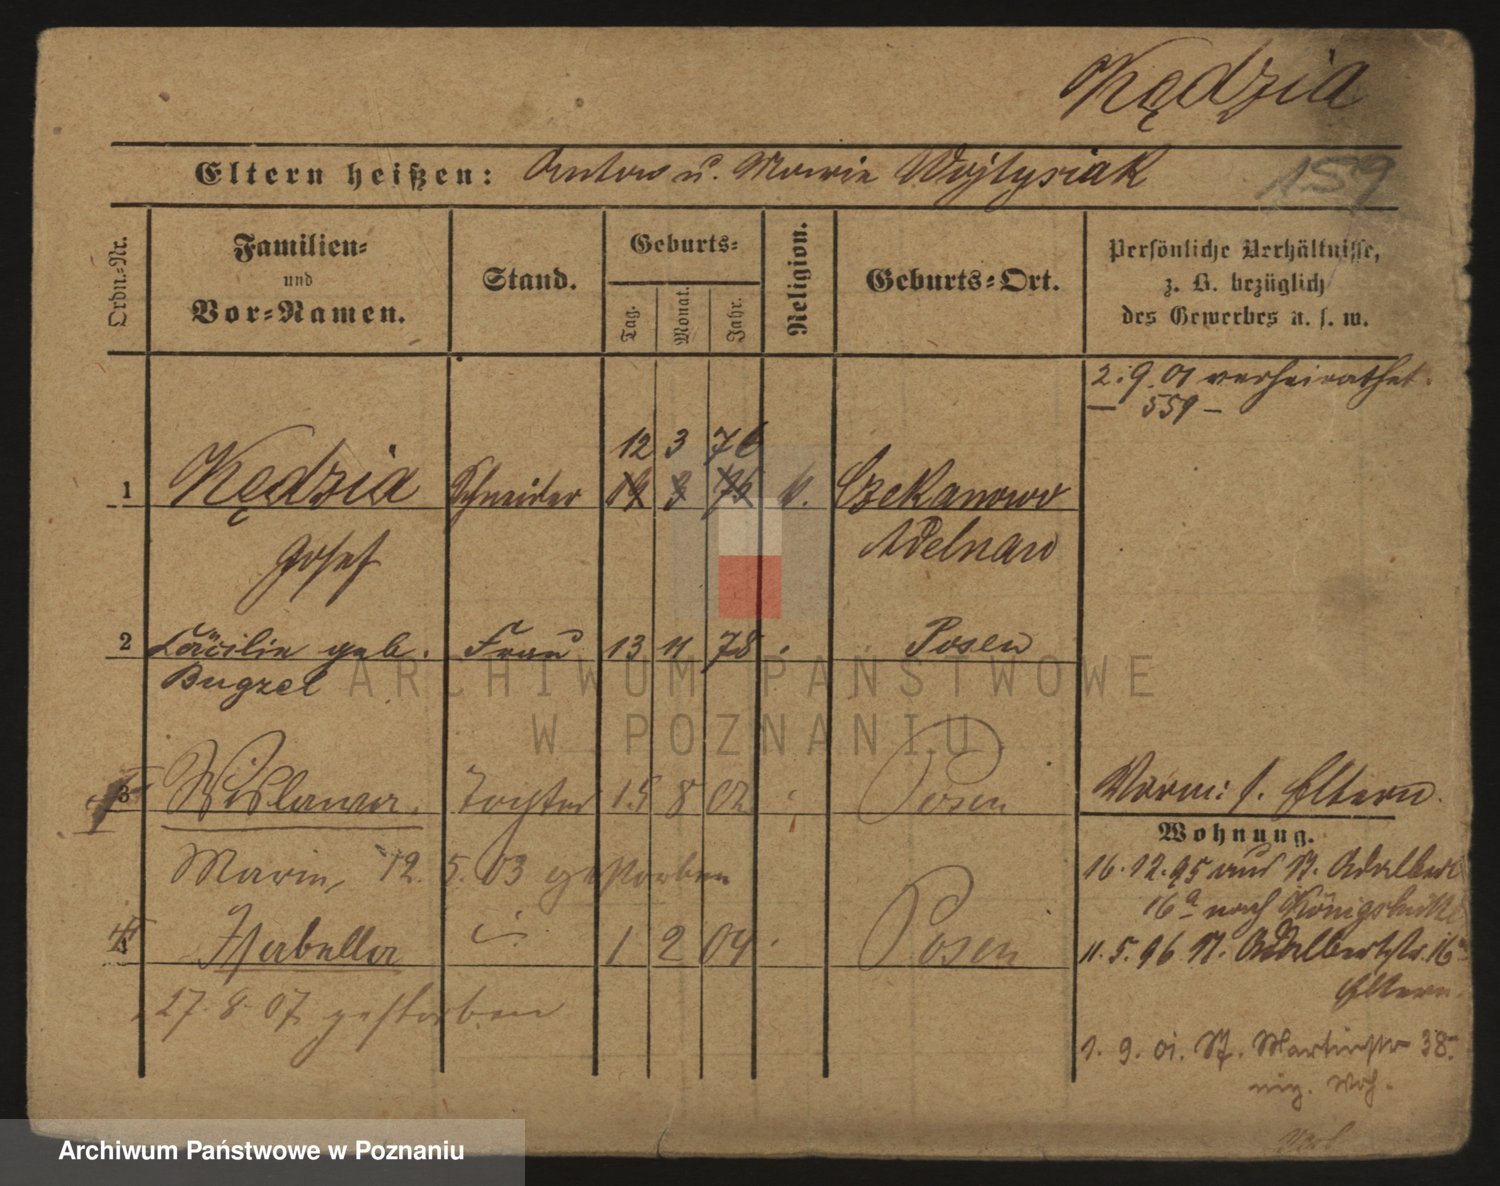 Kędzia
159
Eltern heißen: Anton u. Marie Wojtysiak
Ordn.-Nr.
Familien-
und
Vor-Namen.
Stand.
Geburts-
Tag.
Monat.
Jahr.
Religion.
Geburts-Ort.
Persönliche Verhältnisse,
z. B. bezüglich
des Gewerbes u. s. w.
2.9.01 verheirathet.
559
12 3 76
1 Kędzia Schneider k. Czekanowo
Josef Adelnau
2 Cäcilie geb. Frau 13 11 78 Posen
Bugzel
3 Wislawa. Tochter 15 8 02 Posen
Marie, 12. 5. 03 gestorben
4 Isabella 1 2 04 Posen
27. 8. 07 gestorben
Vorm: s. Eltern.
Wohnung.
16.12.95 aus St. Adalbert
16a nach Königshütte
11.5.96 St. Adalbertstr. 16
Eltern.
1. 9. 01. St. Martinstr 38
ARCHIWUM PAŃSTWOWE
W POZNANIU
Archiwum Państwowe w Poznaniu